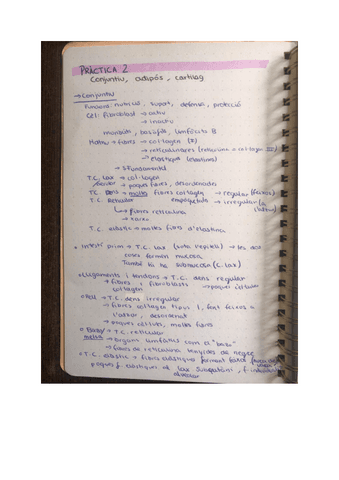 PRÀCTICA 2
Conjuntiu, adipós, cartílag
→ Conjuntiu
Funcions: nutrició, suport, defensa, protecció
Cèl: Fibroblast → actiu
→ inactiu
basòfils, limfòcits B
Matriu → fibres → col·lagen (I)
→ reticulines
→ elàstiques (elastina)
→ s. Fonamental
T.C. Lax → col·lagen
→ poques fibres, desordenades
T.C. Dens → moltes fibres col·lagen → regular (feixos)
T.C. Reticular → irregular
→ fibres reticulina
→ xarxa
T.C. elàstic → moltes fibres d'elastina
• Intestí prim → T.C. Lax (sota l'epiteli) → les dos
coses formen mucosa
També hi ha submucosa (C. lax)
• Lligaments i tendons → T.C. dens regular
→ fibres i fibroblasts → poques cèl·lules
col·lagen
• Pell → T.C. dens irregular
→ fibres col·lagen tipus I, fent feixos a
l'atzar, desordenat
→ poques cèl·lules, moltes fibres
→ T.C. reticular
→ òrgans limfàtics com a "base"
→ fibres de reticulina tenyides de negre
• T.C. elàstic → fibres elàstiques formant
poques f. elàstiques al lax